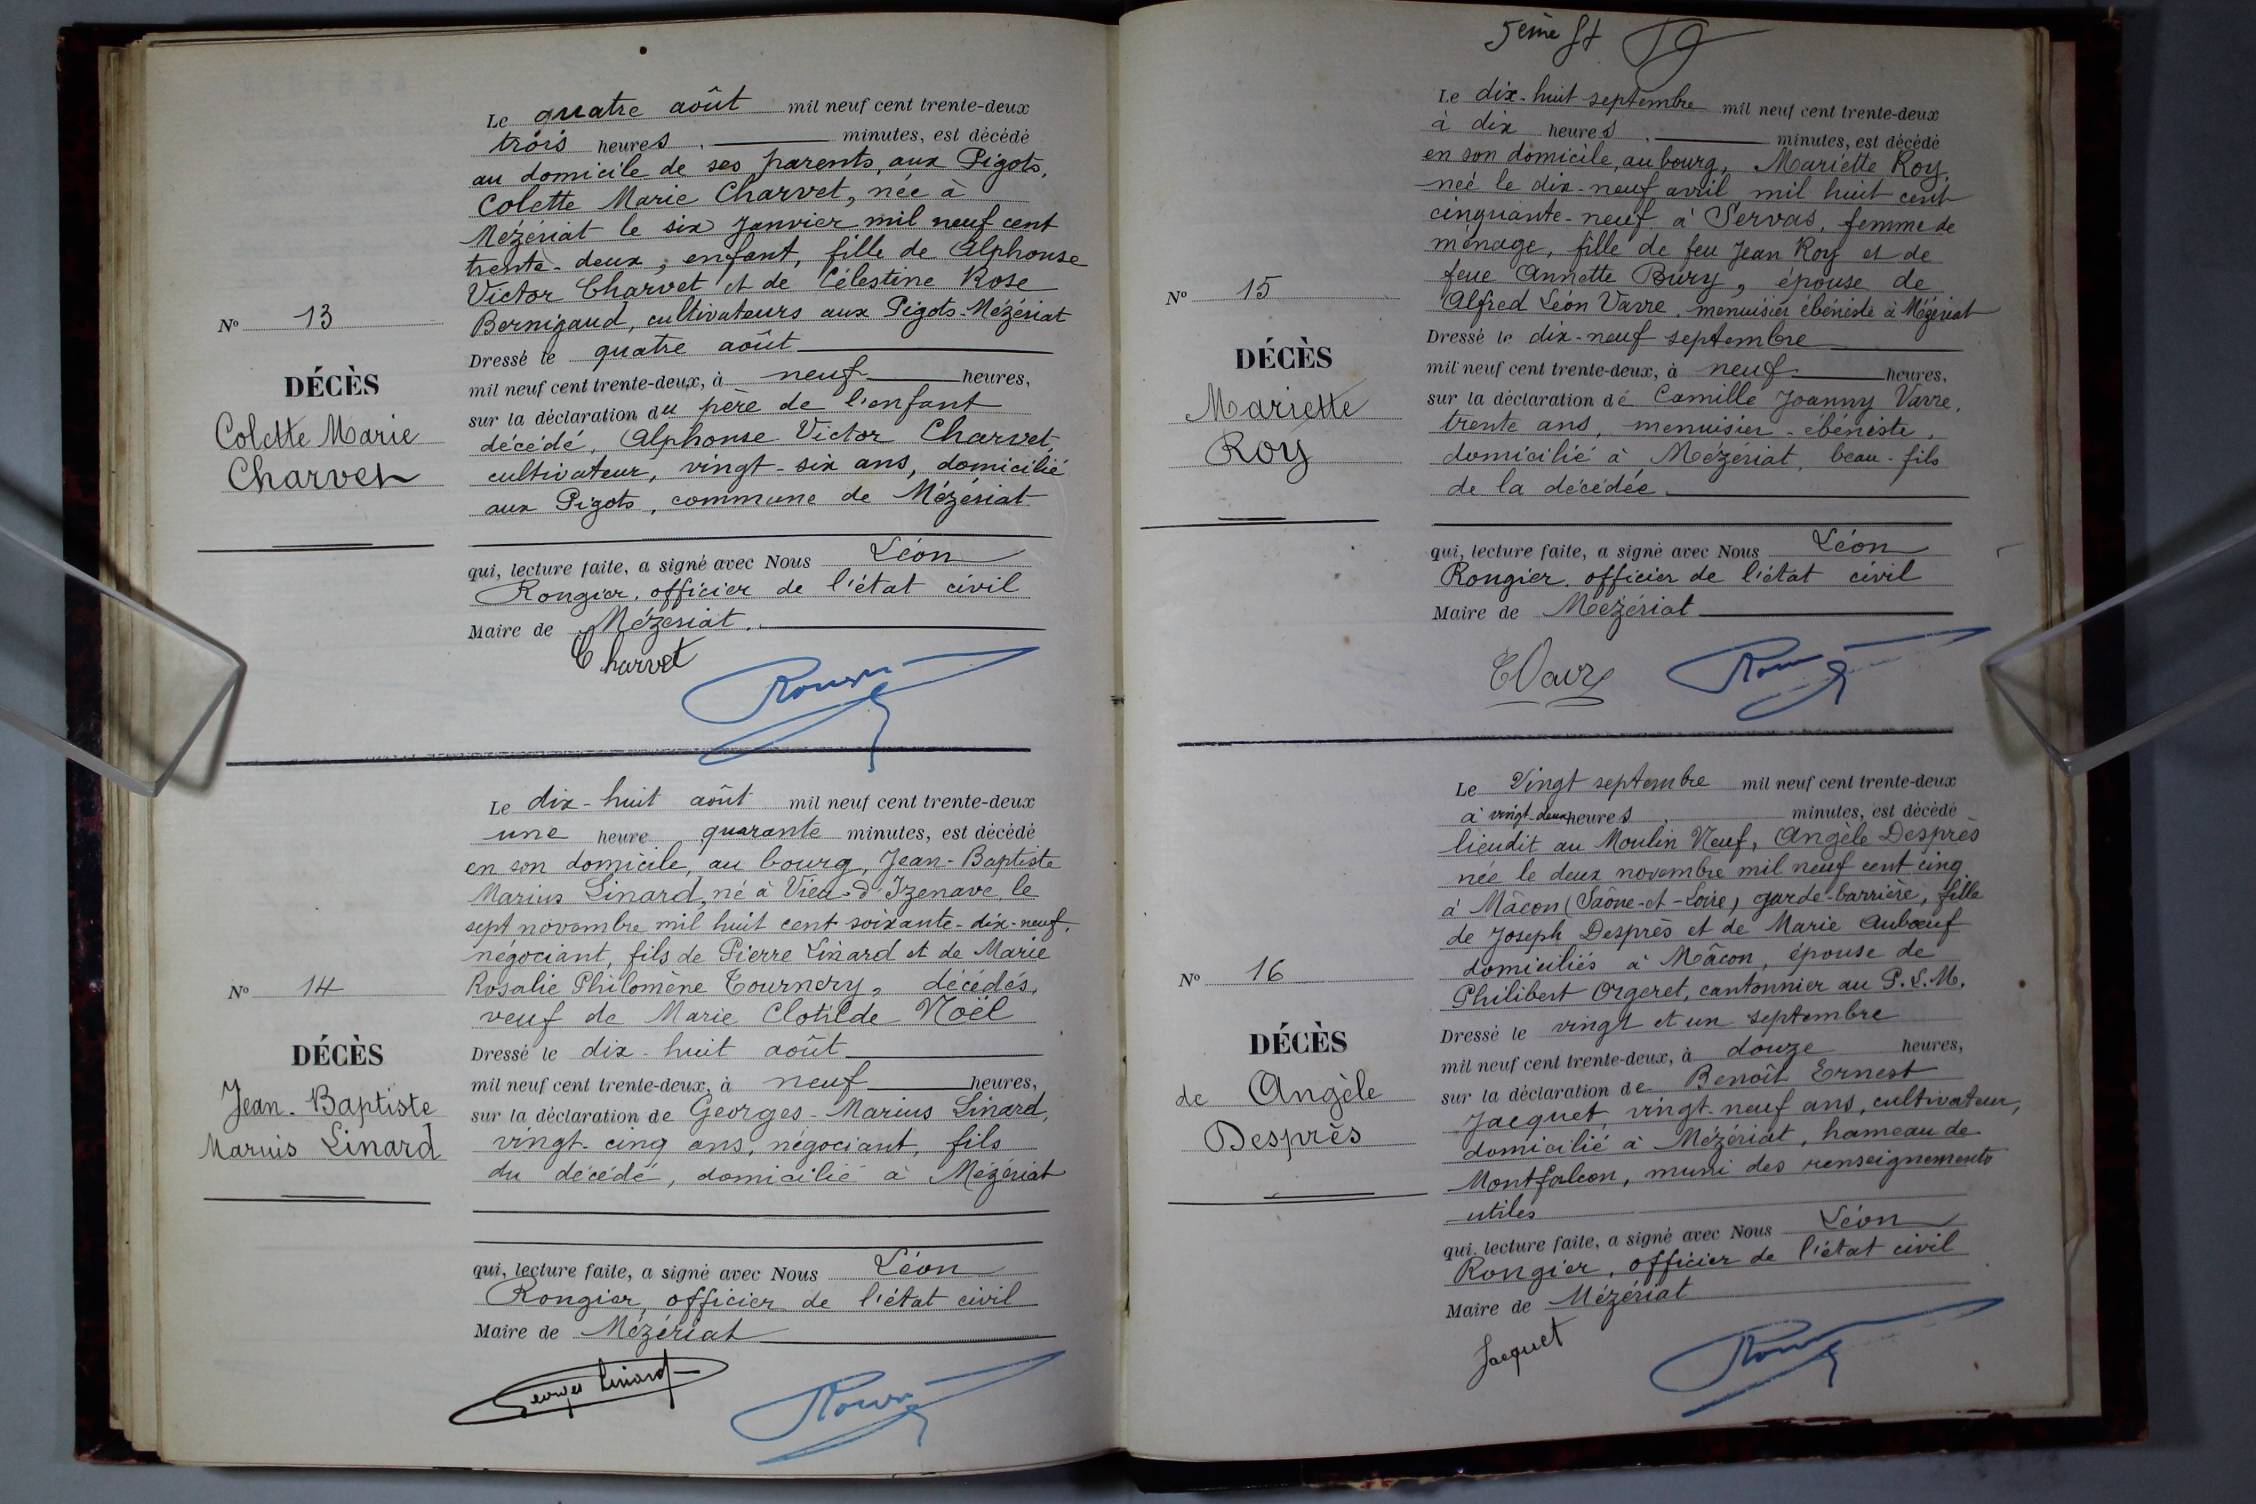 Le quatre août mil neuf cent trente-deux
trois heures minutes, est décédé
au domicile de ses parents, aux Pigots,
Colette Marie Charvet, née à
Mézériat le six Janvier mil neuf cent
trente-deux, enfant, fille de Alphonse
Victor Charvet et de Célestine Rose
Bernigaud, cultivateurs aux Pigots-Mézériat
N° 13
DÉCÈS
Colette Marie
Charvet
Dressé le quatre août
mil neuf cent trente-deux, à neuf heures,
sur la déclaration du père de l'enfant
décédé, Alphonse Victor Charvet,
cultivateur, vingt-six ans, domicilié
aux Pigots, commune de Mézériat
qui, lecture faite, a signé avec Nous Léon
Rongier, officier de l'état civil
Maire de Mézériat.
Charvet
Le dix-huit août mil neuf cent trente-deux
une heure quarante minutes, est décédé
en son domicile, au bourg, Jean-Baptiste
Marius Linard, né à Vieu-d'Izenave, le
sept novembre mil huit cent soixante-dix-neuf,
négociant, fils de Pierre Linard et de Marie
Rosalie Philomène Tournery, décédés,
veuf de Marie Clotilde Noël
N° 14
DÉCÈS
Jean-Baptiste
Marius Linard
Dressé le dix-huit août
mil neuf cent trente-deux, à neuf heures,
sur la déclaration de Georges-Marius Linard,
vingt-cinq ans, négociant, fils
du décédé, domicilié à Mézériat
qui, lecture faite, a signé avec Nous Léon
Rongier, officier de l'état civil
Maire de Mézériat
Georges Linard
5ème ft
Le dix-huit septembre mil neuf cent trente-deux
à dix heures minutes, est décédé
en son domicile, au bourg, Mariette Roy,
née le dix-neuf avril mil huit cent
cinquante-neuf à Servas, femme de
ménage, fille de feu Jean Roy et de
feue Annette Bury, épouse de
Alfred Léon Varre, menuisier ébéniste à Mézériat
N° 15
DÉCÈS
Mariette
Roy
Dressé le dix-neuf septembre
mil neuf cent trente-deux, à neuf heures,
sur la déclaration de Camille Joanny Varre,
trente ans, menuisier-ébéniste,
domicilié à Mézériat, beau-fils
de la décédée
qui, lecture faite, a signé avec Nous Léon
Rongier, officier de l'état civil
Maire de Mézériat
Le Vingt septembre mil neuf cent trente-deux
à vingt-deux heures minutes, est décédé
lieudit au Moulin Neuf, Angèle Desprès
née le deux novembre mil neuf cent cinq
à Mâcon (Saône-et-Loire) garde-barrière, fille
de Joseph Desprès et de Marie Aubœuf
domiciliés à Mâcon, épouse de
Philibert Orgeret, cantonnier au P.L.M.
N° 16
DÉCÈS
de Angèle
Desprès
Dressé le vingt et un septembre
mil neuf cent trente-deux, à douze heures,
sur la déclaration de Benoît Ernest
Jacquet, vingt-neuf ans, cultivateur,
domicilié à Mézériat, hameau de
Montfalcon, muni des renseignements
utiles
qui, lecture faite, a signé avec Nous Léon
Rongier, officier de l'état civil
Maire de Mézériat
Jacquet